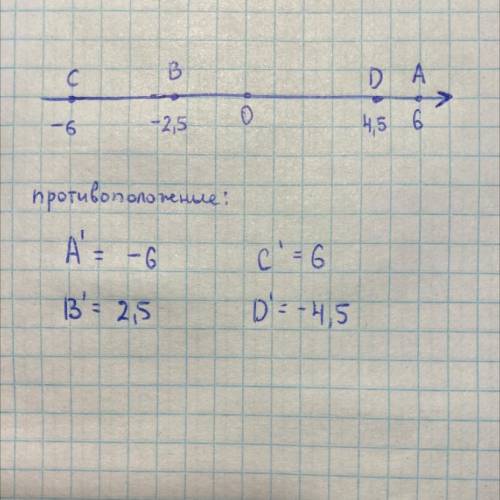 C B D A
-6 -2,5 0 4,5 6
противоположные:
A' = -6 C' = 6
B' = 2,5 D' = -4,5